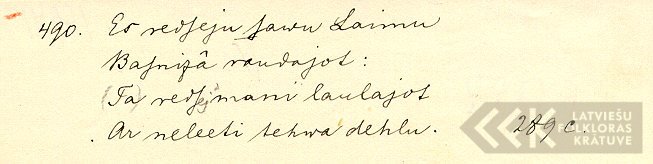 490. Es redseju sawu Laimu
Basnizâ raudajot:
Ta redsej mani laulajot
Ar neleeti tehwa dehlu. 289 c.
LATVIEŠU
FOLKLORAS
KRĀTUVE